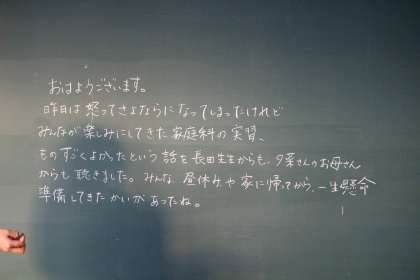 おはようございます。
昨日は怒ってさよならになってしまったけれど
みんなが楽しみにしてきた家庭科の実習、
ものすごくよかったという話を長田先生からも、夕菜さんのお母さん
からも聴きました。みんな、昼休みや家に帰ってから、一生懸命
準備してきたかいがあったね。